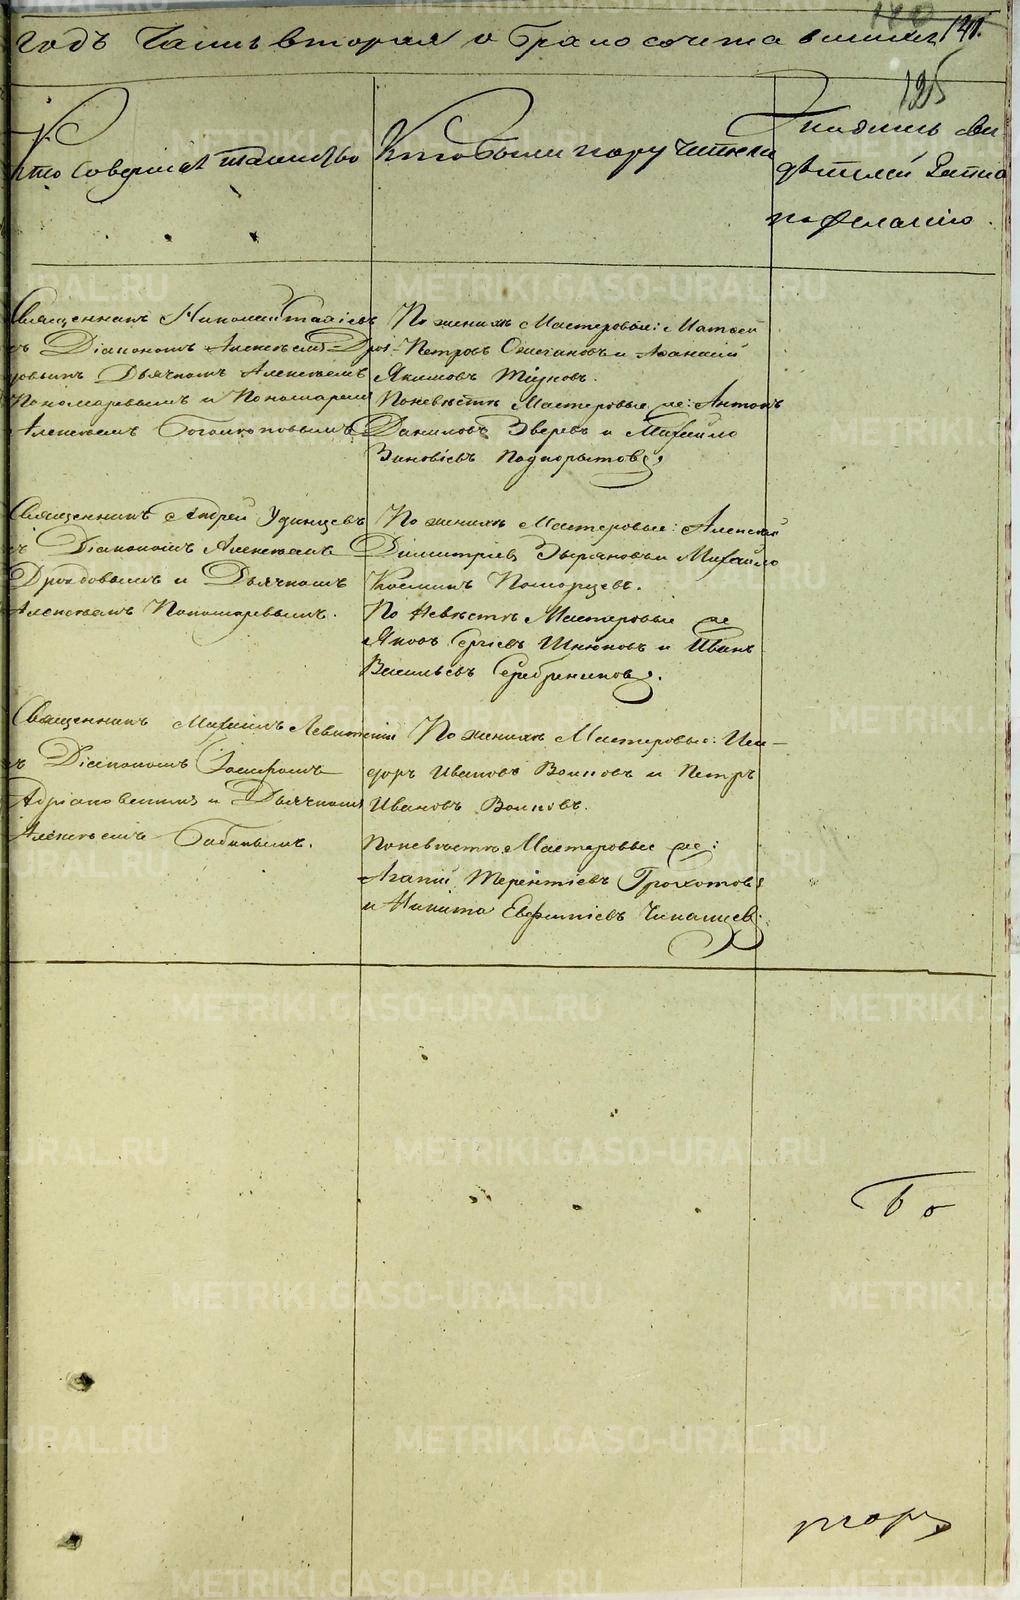 годъ Часть вторая о бракосочетавшихся 141.
125
Кто совершалъ таинство
Кто были поручители
Подпись сви
дѣтелей записи
по желанію.
Священникъ Николай
съ Діакономъ Алексѣемъ Дроз-
довымъ Дьячкомъ Алексѣемъ
Пономаревымъ и Пономаремъ
Алексѣемъ Боголюповымъ
По женихѣ Мастеровые: Матвей
Петровъ Ожегановъ и Афанасій
Якимовъ Тіуновъ.
По невѣстѣ Мастеровые же: Антонъ
Даниловъ Зверевъ и Михайло
Зиновіевъ Подкорытовъ
Священникъ Андрей Удинцевъ
съ Діакономъ Алексѣемъ
Дроздовымъ и Дьячкомъ
Алексѣемъ Пономаревымъ.
По женихѣ Мастеровые: Алексей
Димитріевъ Зыряновъ и Михайло
Козминъ Поморцевъ.
По Невѣстѣ Мастеровые же
Яковъ Сергіевъ Шнюковъ и Иванъ
Васильевъ Серебренниковъ.
Священникъ Михаилъ Левитскій
съ Діакономъ Іосифомъ
Адріановскимъ и Дьячкомъ
Алексѣемъ Бабинымъ.
По женихѣ Мастеровые: Иси-
доръ Ивановъ Волковъ и Петръ
Ивановъ Волковъ.
По невѣстѣ Мастеровые же:
Агапій Терентіевъ Грохотовъ
и Никита Евфиміевъ Чикалцевъ
METRIKI.GASO-URAL.RU